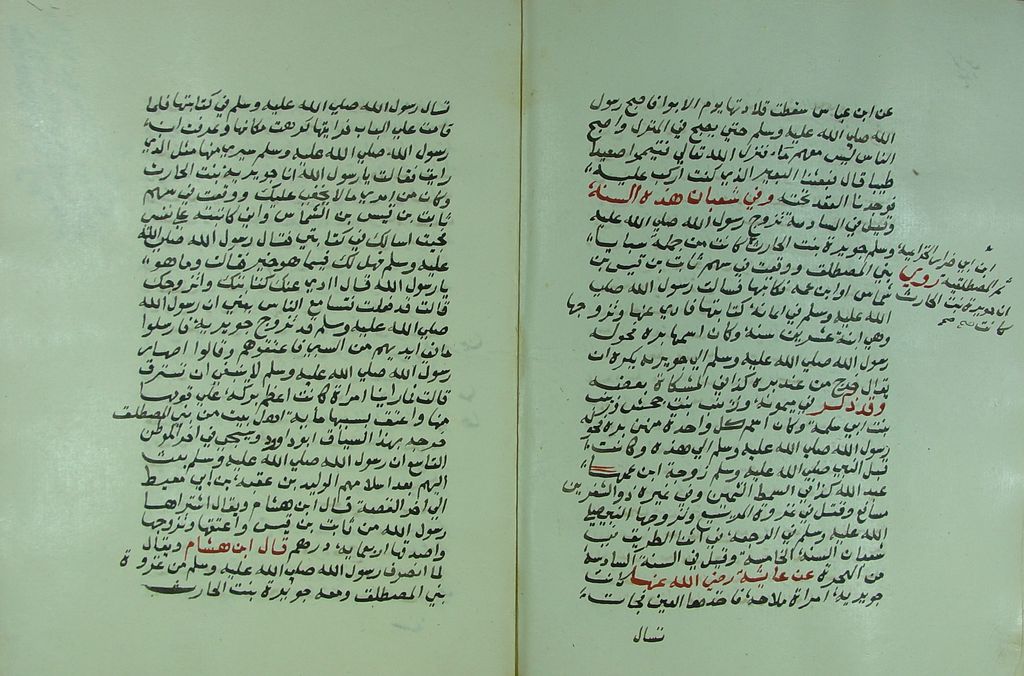 عن ابن عباس سقطت قلادتها يوم الابوا فاصبح رسول
الله صلي الله عليه وسلم حتي يصبح في المنزل واصبح
الناس ليس معهم ماء فنزل الله تعالي فتيمموا صعيدا
طيبا قال فبعثنا البعير الذي كنت اركب عليه
فوجدنا العقد تحته وفي شعبان هذه السنة
وقيل في السادسة تزوج رسول الله صلي الله عليه
وسلم جويرية بنت الحارث كانت من جملة سبايا
بني المصطلق ووقعت في سهم ثابت بن قيس بن
شماس او ابن عمه فكاتبها فسالت رسول الله صلي
الله عليه وسلم في اعانة كتابتها فادي عنها وتزوجها
وهي ابنة عشرين سنة وكان اسمها برة فحوله
رسول الله صلي الله عليه وسلم الي جويرية يكره ان
يقال خرج من عند برة كذا في المشكاة بعضه
وقد ذكر في ميمونة وزينب بنت جحش وزينب
بنت ابي سلمة وكان اسم كل واحدة منهن برة فحوله
رسول الله صلي الله عليه وسلم الي هذه وكانت
قبل النبي صلي الله عليه وسلم زوجة ابن عمها
عبد الله كذا في السمط الثمين وفي غيره ذو الشفرين
مسافع وقتل في غزوة المريسيع وتزوجها النبي صلي
الله عليه وسلم في الرجعة في اثنا الطريق في
شعبان السنة الخامسة وقيل في السنة السادسة
من الهجرة عن عايشة رضي الله عنها كانت
جويرية امراة ملاحة تاخذها العين فجات
تسال
ابن ابي ضرار الخزاعية
ثم المصطلقية روي
ان جويرية بنت الحارث
كانت
تسال رسول الله صلي الله عليه وسلم في كتابتها فلما
قامت علي الباب فرايتها كرهت مكانها وعرفت ان
رسول الله صلي الله عليه وسلم سيري منها مثل الذي
رايت فقالت يا رسول الله انا جويرية بنت الحارث
وكان من امري ما لا يخفي عليك ووقعت في سهم
ثابت بن قيس بن الشماس واني كاتبته علي نفسي
فجيت اسالك في كتابتي فقال رسول الله صلي الله
عليه وسلم فهل لك فيما هو خير قالت وما هو
يا رسول الله قال اادي عنك كتابتك واتزوجك
قالت قد فعلت فتسامع الناس يعني ان رسول الله
صلي الله عليه وسلم قد تزوج جويرية فارسلوا
ما في ايديهم من السبي فاعتقوهم وقالوا اصهار
رسول الله صلي الله عليه وسلم لا ينبغي ان تسترق
قالت فما راينا امراة كانت اعظم بركة علي قومها
منها واعتق بسببها ماية اهل بيت من بني المصطلق
خرجه بهذا السياق ابو داود وسيجي في اخر الموطن
التاسع ان رسول الله صلي الله عليه وسلم بعث
اليهم بعد اسلامهم الوليد بن عقبة بن ابي معيط
الي اخر القصة قال ابن هشام ويقال اشتراها
رسول الله من ثابت بن قيس واعتقها وتزوجها
واصدقها اربعماية درهم قال ابن هشام ويقال
لما انصرف رسول الله صلي الله عليه وسلم من غزوة
بني المصطلق ومعه جويرية بنت الحارث